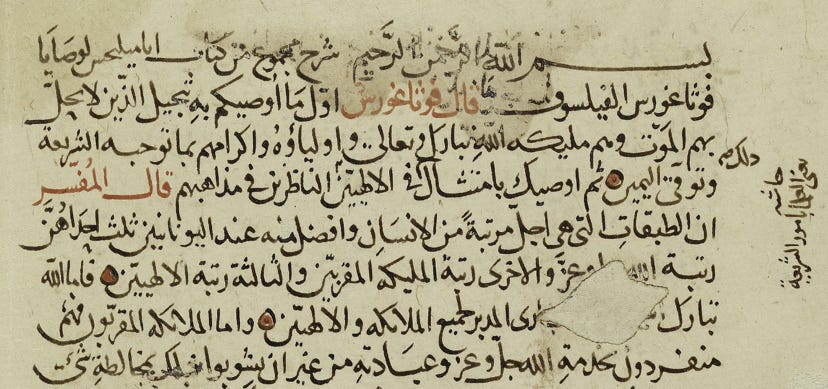 بسم الله الرحمن الرحيم شرح مجموع من كتاب اياميليخس لوصايا
فوثاغورس الفيلسوف قال فوثاغورس اول ما اوصيكم به تبجيل الذين لا يحل
بهم الموت وهم مليكه الله تبارك وتعالى واولياؤه واكرامهم بما توجبه الشريعة
وتوقي اليمين ثم اوصيك بامتثال في الالهيين الناظرين في مذاهبهم قال المفسر
ان الطبقات التي هي اجل مرتبة من الانسان وافضل منه عند اليونانين ثلث احداهن
رتبة الله وعز والاخرى رتبة المليكه المقربين والثالثة رتبة الالهيين فاما الله
تبارك المدبر لجميع الملائكه والالهيين واما الملائكه المقربون فهم
منفردون بخدمة الله جل وعز وعبادته من غير ان يشوبوا ذلك بمخالطة شئ
حاشيه
يعني العلما بامور الشريعة